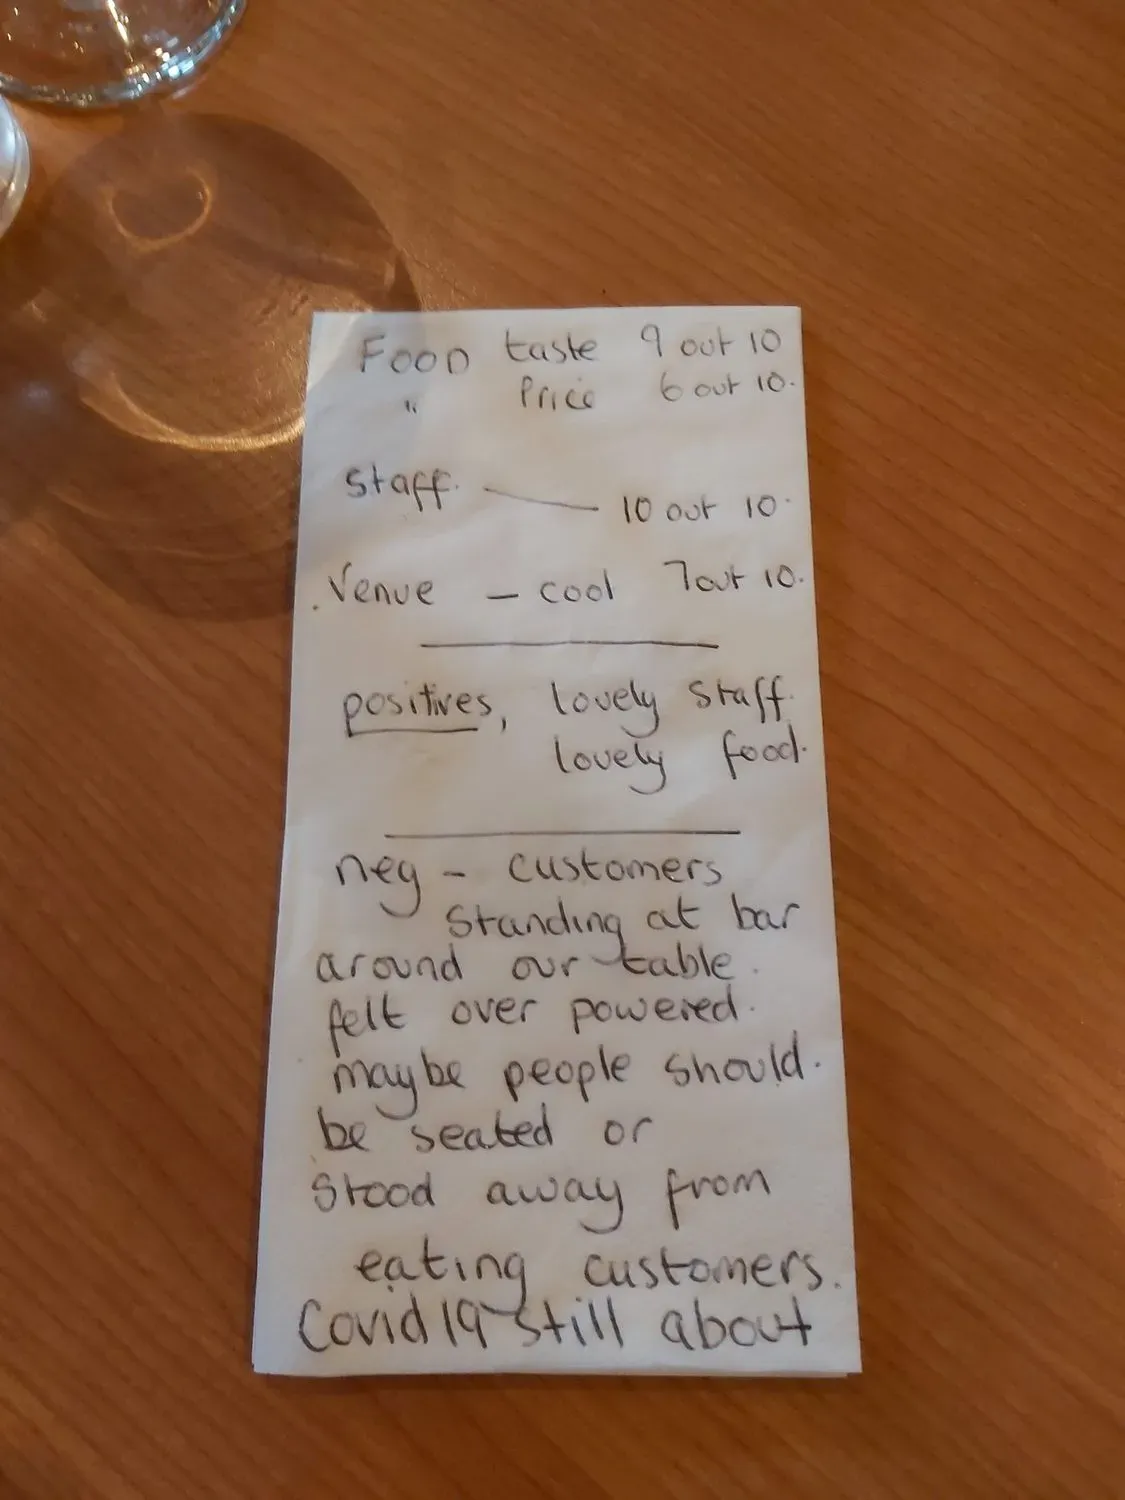 Food taste 9 out 10
" Price 6 out 10.
Staff. — 10 out 10.
. Venue — cool 7 out 10.
positives, lovely staff.
lovely food.
neg - customers
standing at bar
around our table.
felt over powered.
maybe people should.
be seated or
stood away from
eating customers.
Covid 19 still about